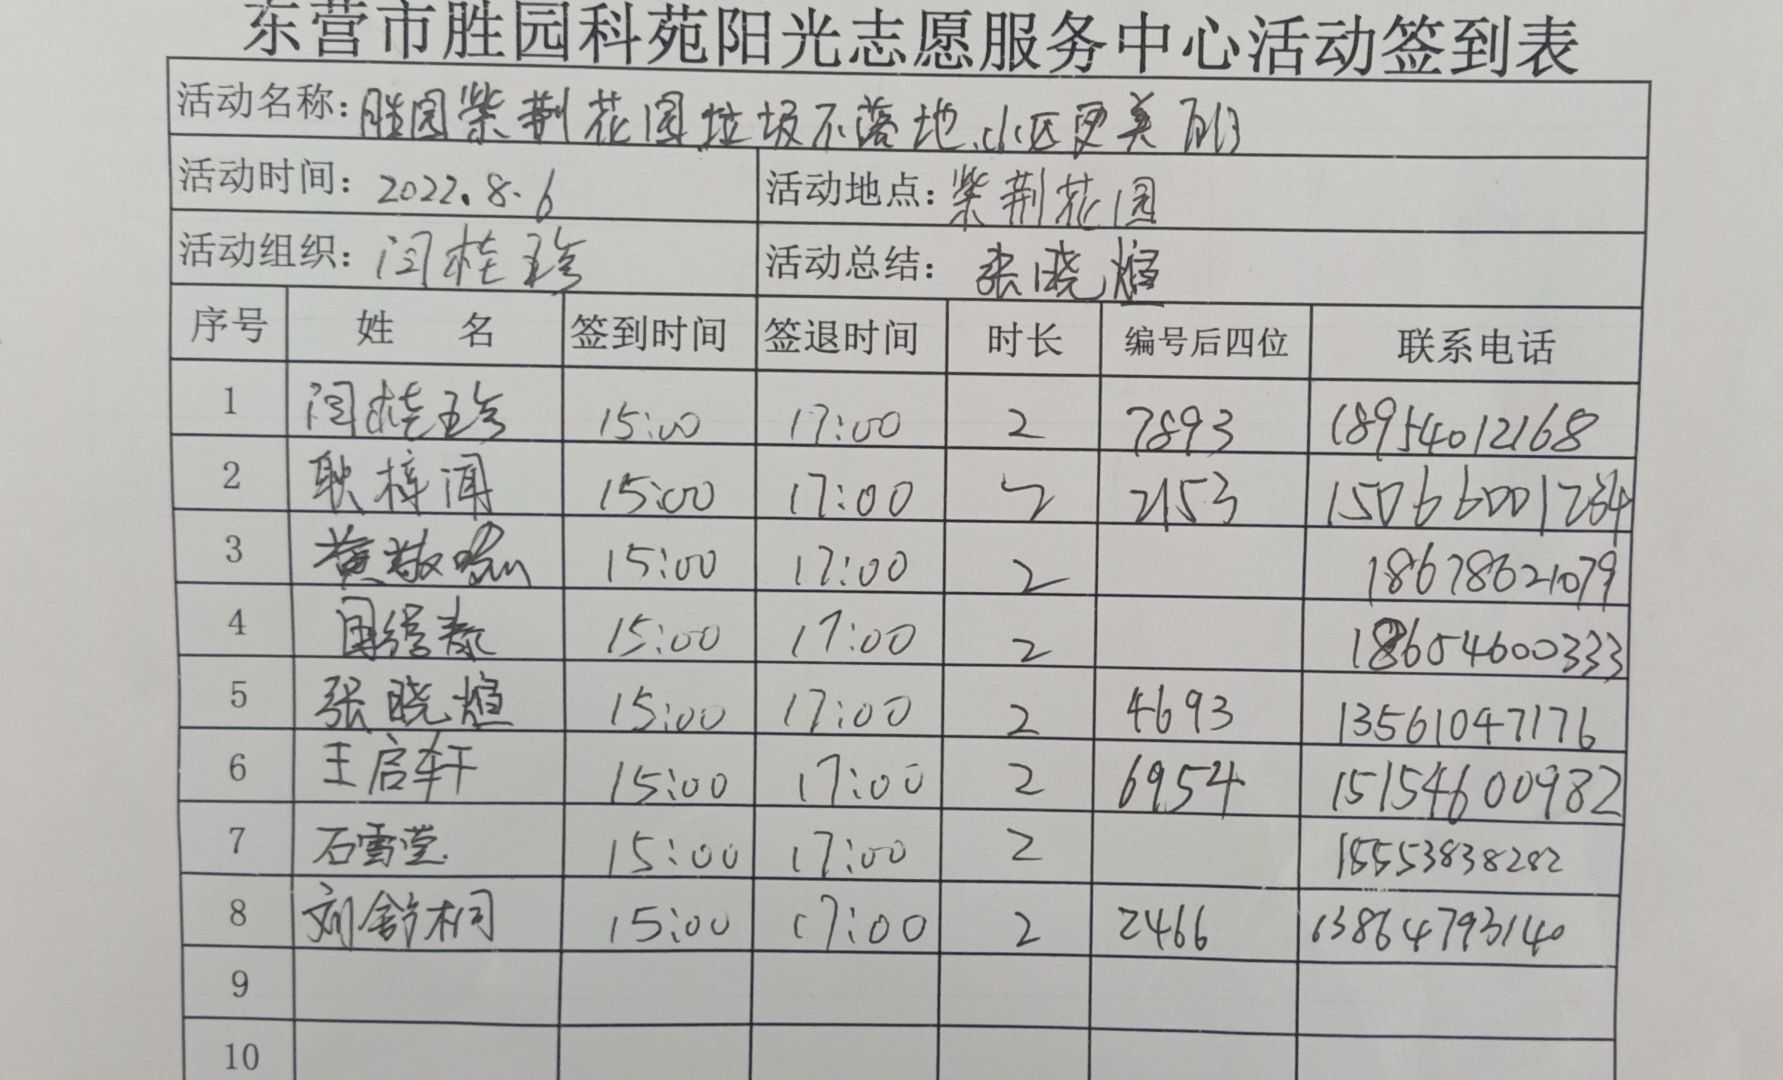 东营市胜园科苑阳光志愿服务中心活动签到表
活动名称：胜园紫荆花园垃圾不落地,小区更美丽
活动时间：2022.8.6 活动地点：紫荆花园
活动组织：闫桂珍 活动总结：张晓煊
序号 姓 名 签到时间 签退时间 时长 编号后四位 联系电话
1 闫桂珍 15:00 17:00 2 7893 18954012168
2 耿梓闻 15:00 17:00 2 2153 15066001234
3 黄敬 15:00 17:00 2 18678621079
4 15:00 17:00 2 18654600333
5 张晓煊 15:00 17:00 2 4693 13561047176
6 王启轩 15:00 17:00 2 6954 15154600982
7 石雪莹 15:00 17:00 2 15553838282
8 刘舒桐 15:00 17:00 2 2466 13864793140
9
10